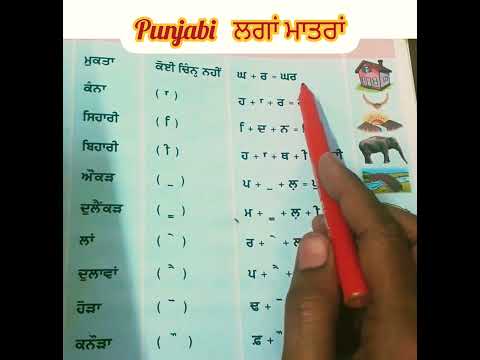 Punjabi ਲਗਾਂ ਮਾਤਰਾਂ
ਮੁਕਤਾ ਕੋਈ ਚਿੰਨ੍ਹ ਨਹੀਂ ਘ + ਰ = ਘਰ
ਕੰਨਾ ( ਾ ) ਹ + ਾ + ਰ =
ਸਿਹਾਰੀ ( ਿ ) ਿ + ਦ + ਨ =
ਬਿਹਾਰੀ ( ੀ ) ਹ + ਾ + ਥ + ੀ
ਔਂਕੜ ( ੁ ) ਪ + ੁ + ਲ਼ =
ਦੁਲੈਂਕੜ ( ੂ ) ਮ + ੂ + ਲ਼ + ੀ
ਲਾਂ ( ੇ ) ਰ + ੇ + ਲ
ਦੁਲਾਵਾਂ ( ੈ ) ਪ + ੈ +
ਹੋੜਾ ( ੋ ) ਢ + ੋ
ਕਨੌੜਾ ( ੌ ) ਫ਼ + ੌ